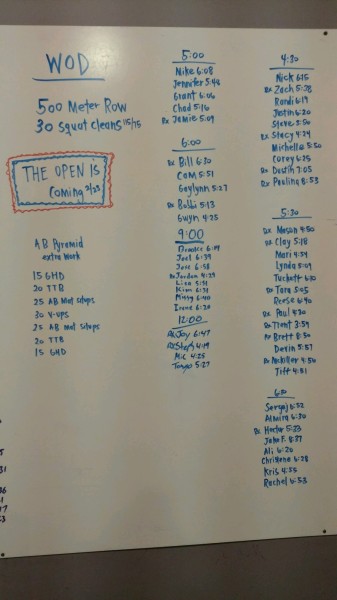 WOD
500 Meter Row
30 Squat cleans 115/75
THE OPEN IS
Coming 2/23
AB Pyramid
extra work
15 GHD
20 TTB
25 AB Mat situps
30 V-ups
25 AB mat situps
20 TTB
15 GHD
5:00
Mike 6:08
Jennifer 5:48
Grant 6:06
Chad 5:16
Rx Jamie 5:09
6:00
Rx Bill 6:30
Cam 5:51
Gaylynn 5:27
Rx Bobbi 5:13
Gwyn 4:25
9:00
Joel 6:39
Rx Jordan 4:29
Lisa 5:31
Kim 6:31
Missy 6:40
Irene 6:20
12:00
Rx Joy 6:47
Rx Steph 4:19
Mic 4:25
Tongo 5:27
4:30
Nick 6:15
Rx Zach 5:28
Randi 6:19
Justin 6:20
Steve 5:50
Rx Stacy 4:24
Michelle 5:50
Corey 6:25
Rx Dustin 7:05
Rx Paulina 8:53
5:30
Rx Mason 4:50
Rx Clay 5:18
Mari 4:59
Lynda 5:09
Tuckett 6:10
Rx Tara 5:05
Reese 6:40
Rx Paul 4:30
Rx Trent 3:59
Rx Brett 8:30
Devin 5:57
Rx McKiller 4:50
Tiff 4:31
6P
Sergoj 5:32
Almira 6:30
Rx Hector 5:23
John F. 8:37
Ali 6:20
Christena 6:28
Kris 4:55
Rachel 6:53